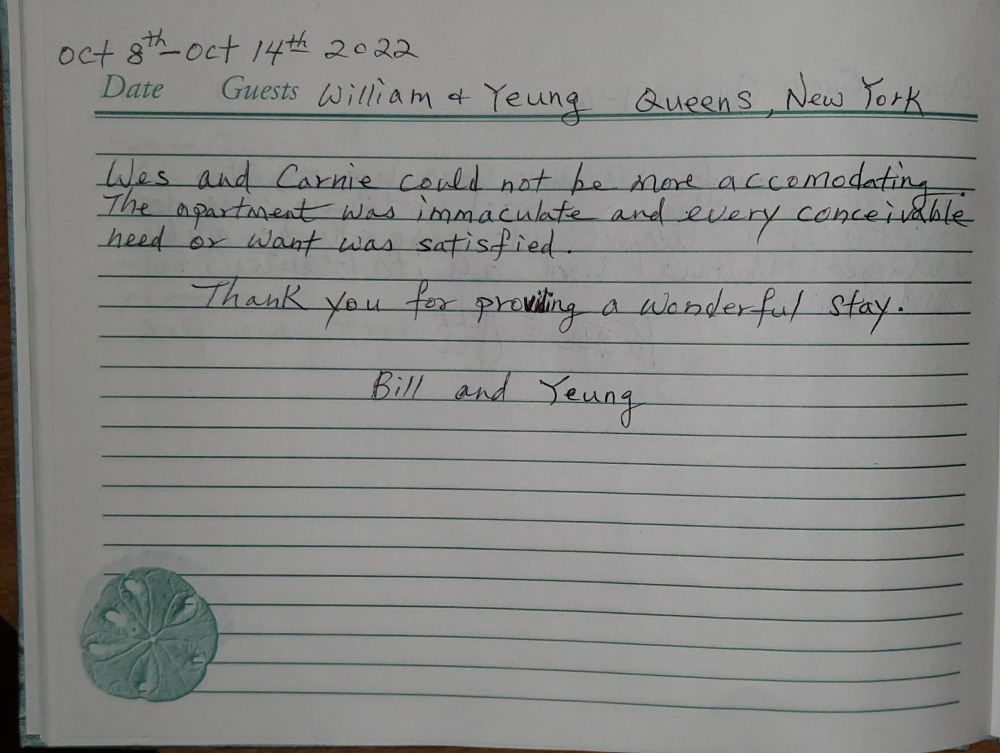 Oct 8th - Oct 14th 2022
Date Guests William & Yeung Queens, New York
Wes and Carnie could not be more accomodating.
The apartment was immaculate and every conceivable
need or want was satisfied.
Thank you for providing a wonderful stay.
Bill and Yeung